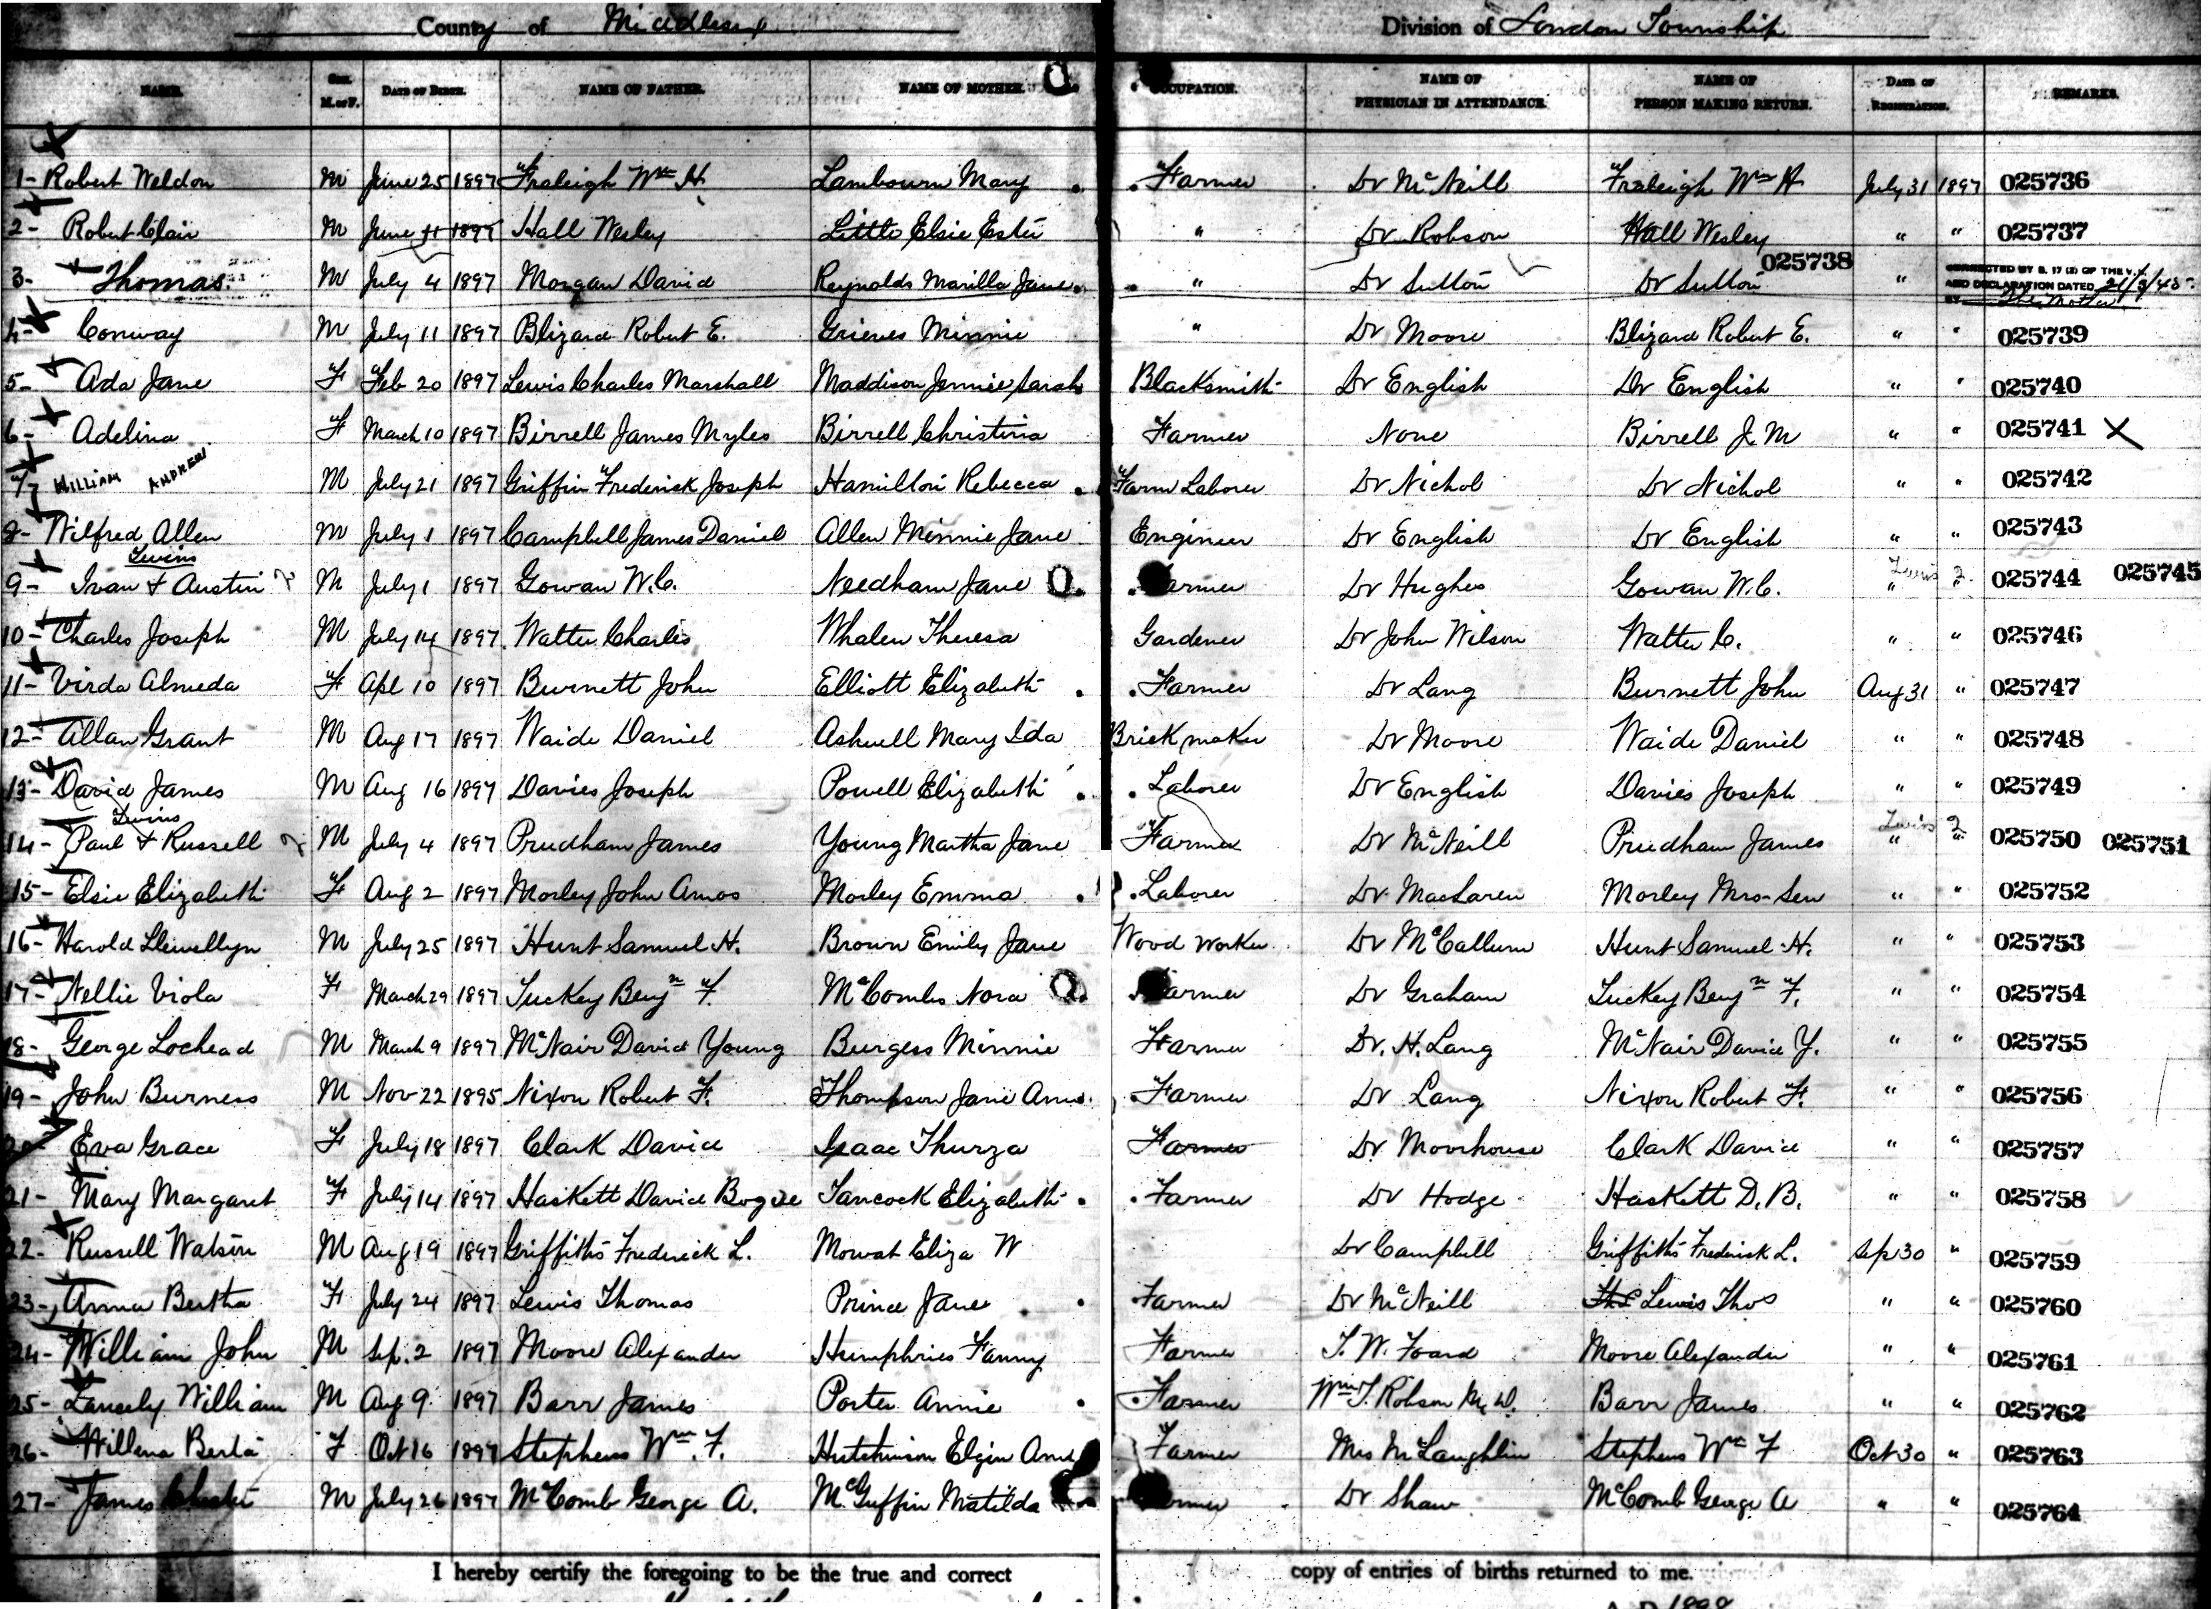 County of Middlesex Division of London Township
NAME. SEX. M. or F. DATE OF BIRTH. NAME OF FATHER. NAME OF MOTHER. OCCUPATION. NAME OF PHYSICIAN IN ATTENDANCE. NAME OF PERSON MAKING RETURN. DATE OF REGISTRATION. REMARKS.
1- Robert Weldon M June 25 1897 Fraleigh Wm H. Lambourn Mary Farmer Dr McNeill Fraleigh Wm H July 31 1897 025736
2- Robert Clair M June 11 1897 Hall Wesley Little Elsie Ester " Dr Robson Hall Wesley " " 025737
3- Thomas. M July 4 1897 Morgan David Reynolds Marilla Jane " Dr Sutton Dr Sutton 025738 " CORRECTED BY S. 17 (2) OF THE V. AND DECLARATION DATED BY The Mother
4- Conway M July 11 1897 Blizard Robert E. Grieves Minnie " Dr Moore Blizard Robert E. " " 025739
5- Ada Jane F Feb 20 1897 Lewis Charles Marshall Maddison Jennie Sarah Blacksmith Dr English Dr English " " 025740
6- Adelina F March 10 1897 Birrell James Myles Birrell Christina Farmer None Birrell J. M " " 025741 X
7- WILLIAM ANDREW M July 21 1897 Griffin Frederick Joseph Hamilton Rebecca Farm Laborer Dr Nichol Dr Nichol " " 025742
8- Wilfred Allen M July 1 1897 Campbell James Daniel Allen Minnie Jane Engineer Dr English Dr English " " 025743
Twins
9- Ivan & Austin 2 M July 1 1897 Gowan W.C. Needham Jane Farmer Dr Hughes Gowan W.C. Twins 2 " " 025744 025745
10- Charles Joseph M July 14 1897 Walter Charles Whalen Theresa Gardener Dr John Wilson Walter C. " " 025746
11- Virda Almeda F Apl 10 1897 Burnett John Elliott Elizabeth Farmer Dr Lang Burnett John Aug 31 " 025747
12- Allan Grant M Aug 17 1897 Waide Daniel Ashwell Mary Ida Brick maker Dr Moore Waide Daniel " " 025748
13- David James M Aug 16 1897 Davies Joseph Powell Elizabeth Laborer Dr English Davies Joseph " " 025749
Twins
14- Paul & Russell 2 M July 4 1897 Prudham James Young Martha Jane Farmer Dr McNeill Prudham James Twins 2 " " 025750 025751
15- Elsie Elizabeth F Aug 2 1897 Morley John Amos Morley Emma Laborer Dr MacLaren Morley Mrs Sen " " 025752
16- Harold Llewellyn M July 25 1897 Hunt Samuel H. Brown Emily Jane Wood worker Dr McCallum Hunt Samuel H. " " 025753
17- Nellie Viola F March 29 1897 Tuckey Benjn F. McCombs Nora Farmer Dr Graham Tuckey Benjn F. " " 025754
18- George Lochead M March 9 1897 McNair David Young Burgess Minnie Farmer Dr. H. Lang McNair David Y. " " 025755
19- John Burness M Nov 22 1895 Nixon Robert F. Thompson Jane Ann Farmer Dr Lang Nixon Robert F. " " 025756
20- Eva Grace F July 18 1897 Clark David Isaac Thurza Farmer Dr. Moorhouse Clark David " " 025757
21- Mary Margaret F July 14 1897 Haskett David Bogue Tancock Elizabeth Farmer Dr Hodge Haskett D. B. " " 025758
22- Russell Watson M Aug 19 1897 Griffiths Frederick L. Mowat Eliza W Dr Campbell Griffiths Frederick L. Sep 30 " 025759
23- Anna Bertha F July 24 1897 Lewis Thomas Prince Jane Farmer Dr McNeill Lewis Thos " " 025760
24- William John M Sep. 2 1897 Moore Alexander Humphries Fanny Farmer T. W. Foard Moore Alexander " " 025761
25- William M Aug 9 1897 Barr James Porter Annie Farmer Wm T. Robson M.D. Barr James " " 025762
26- Willena Berta F Oct 16 1897 Stephens Wm. F. Hutchinson Elgin Ann Farmer Mrs McLaughlin Stephens Wm F Oct 30 " 025763
27- James Chester M July 26 1897 McComb George A. McGuffin Matilda Farmer Dr Shaw McComb George A " " 025764
I hereby certify the foregoing to be the true and correct copy of entries of births returned to me.
A. D. 1898